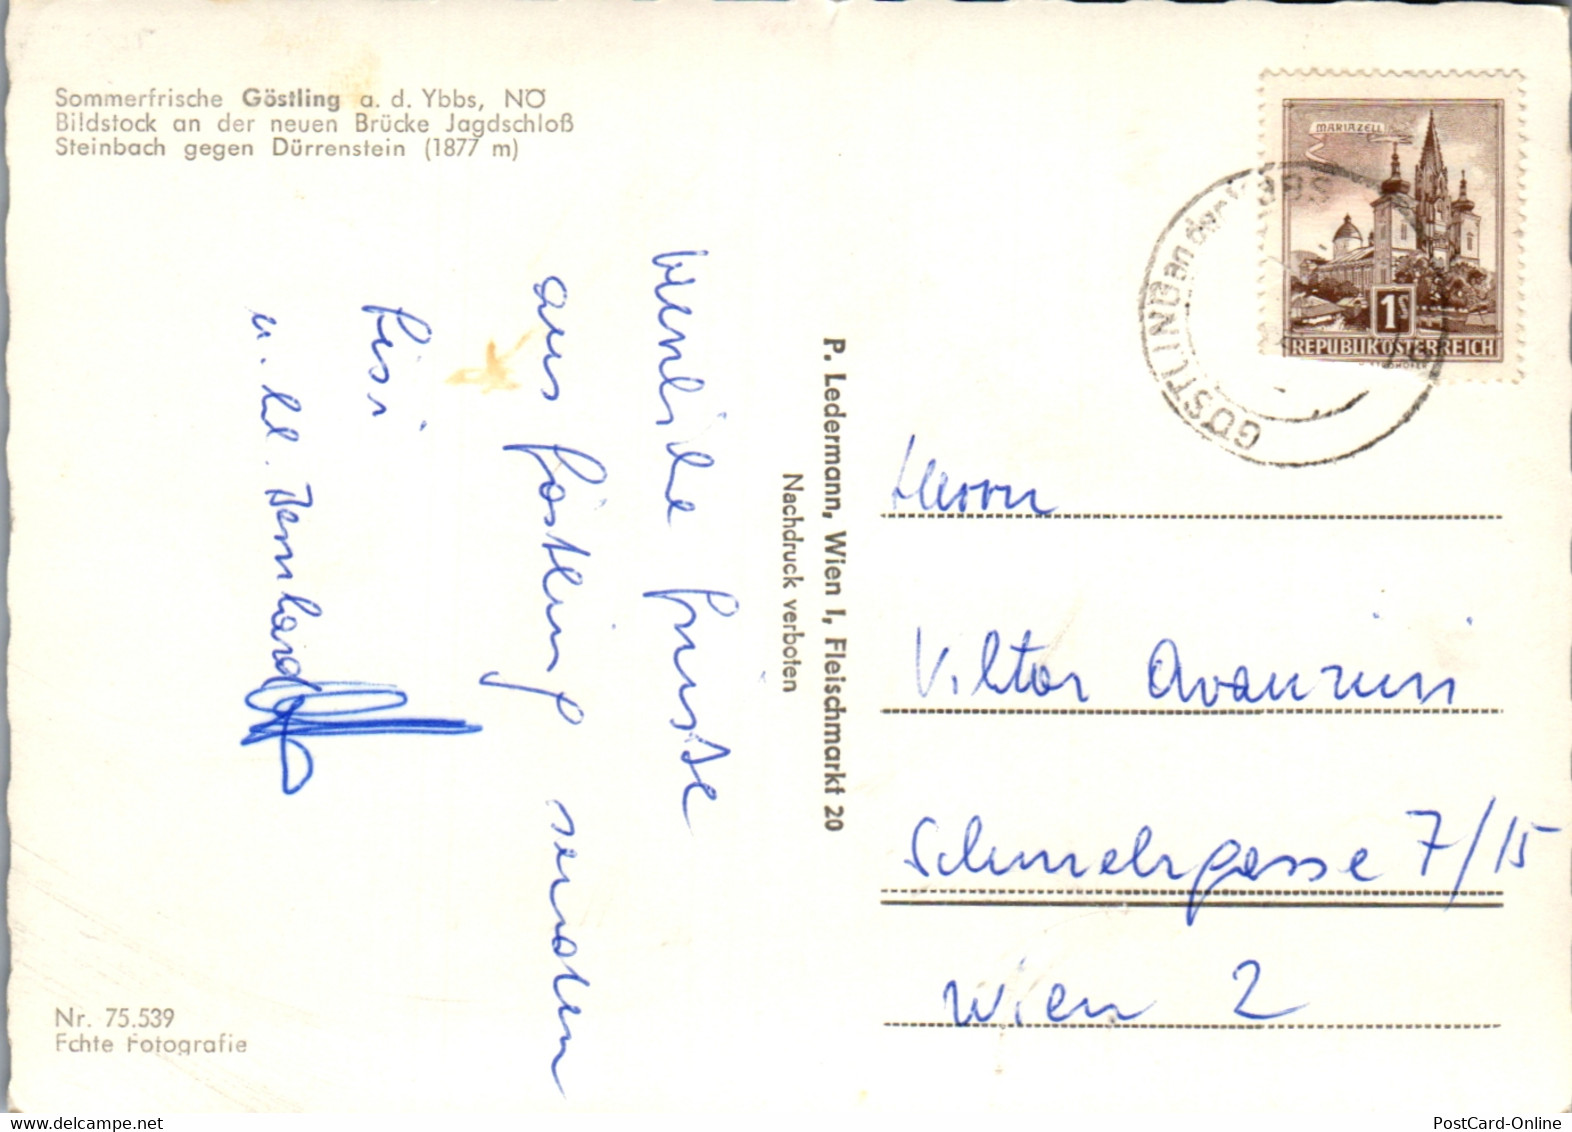 Sommerfrische Göstling a. d. Ybbs, NÖ
Bildstock an der neuen Brücke Jagdschloß
Steinbach gegen Dürrenstein (1877 m)
herzliche Grüsse
aus Göstling senden
Sisi
u. kl. Bernhard
Nr. 75.539
Echte Fotografie
P. Ledermann, Wien I, Fleischmarkt 20
Nachdruck verboten
MARIAZELL
1S
REPUBLIK ÖSTERREICH
GÖSTLING an der YBBS
Herrn
Viktor Avanzini
Schmelzgasse 7/15
Wien 2
PostCard-Online